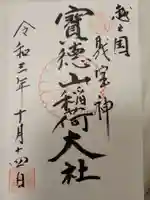 越之国
財宝之神
寳徳山稲荷大社
令和三年十月十四日